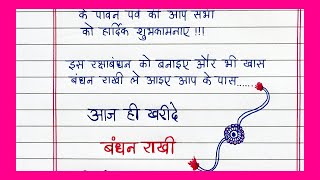 के पावन पर्व की आप सभी
को हार्दिक शुभकामनाएं !!!
इस रक्षाबंधन को बनाइए और भी खास
बंधन राखी ले आइए आप के पास.......
आज ही खरीदे
बंधन राखी